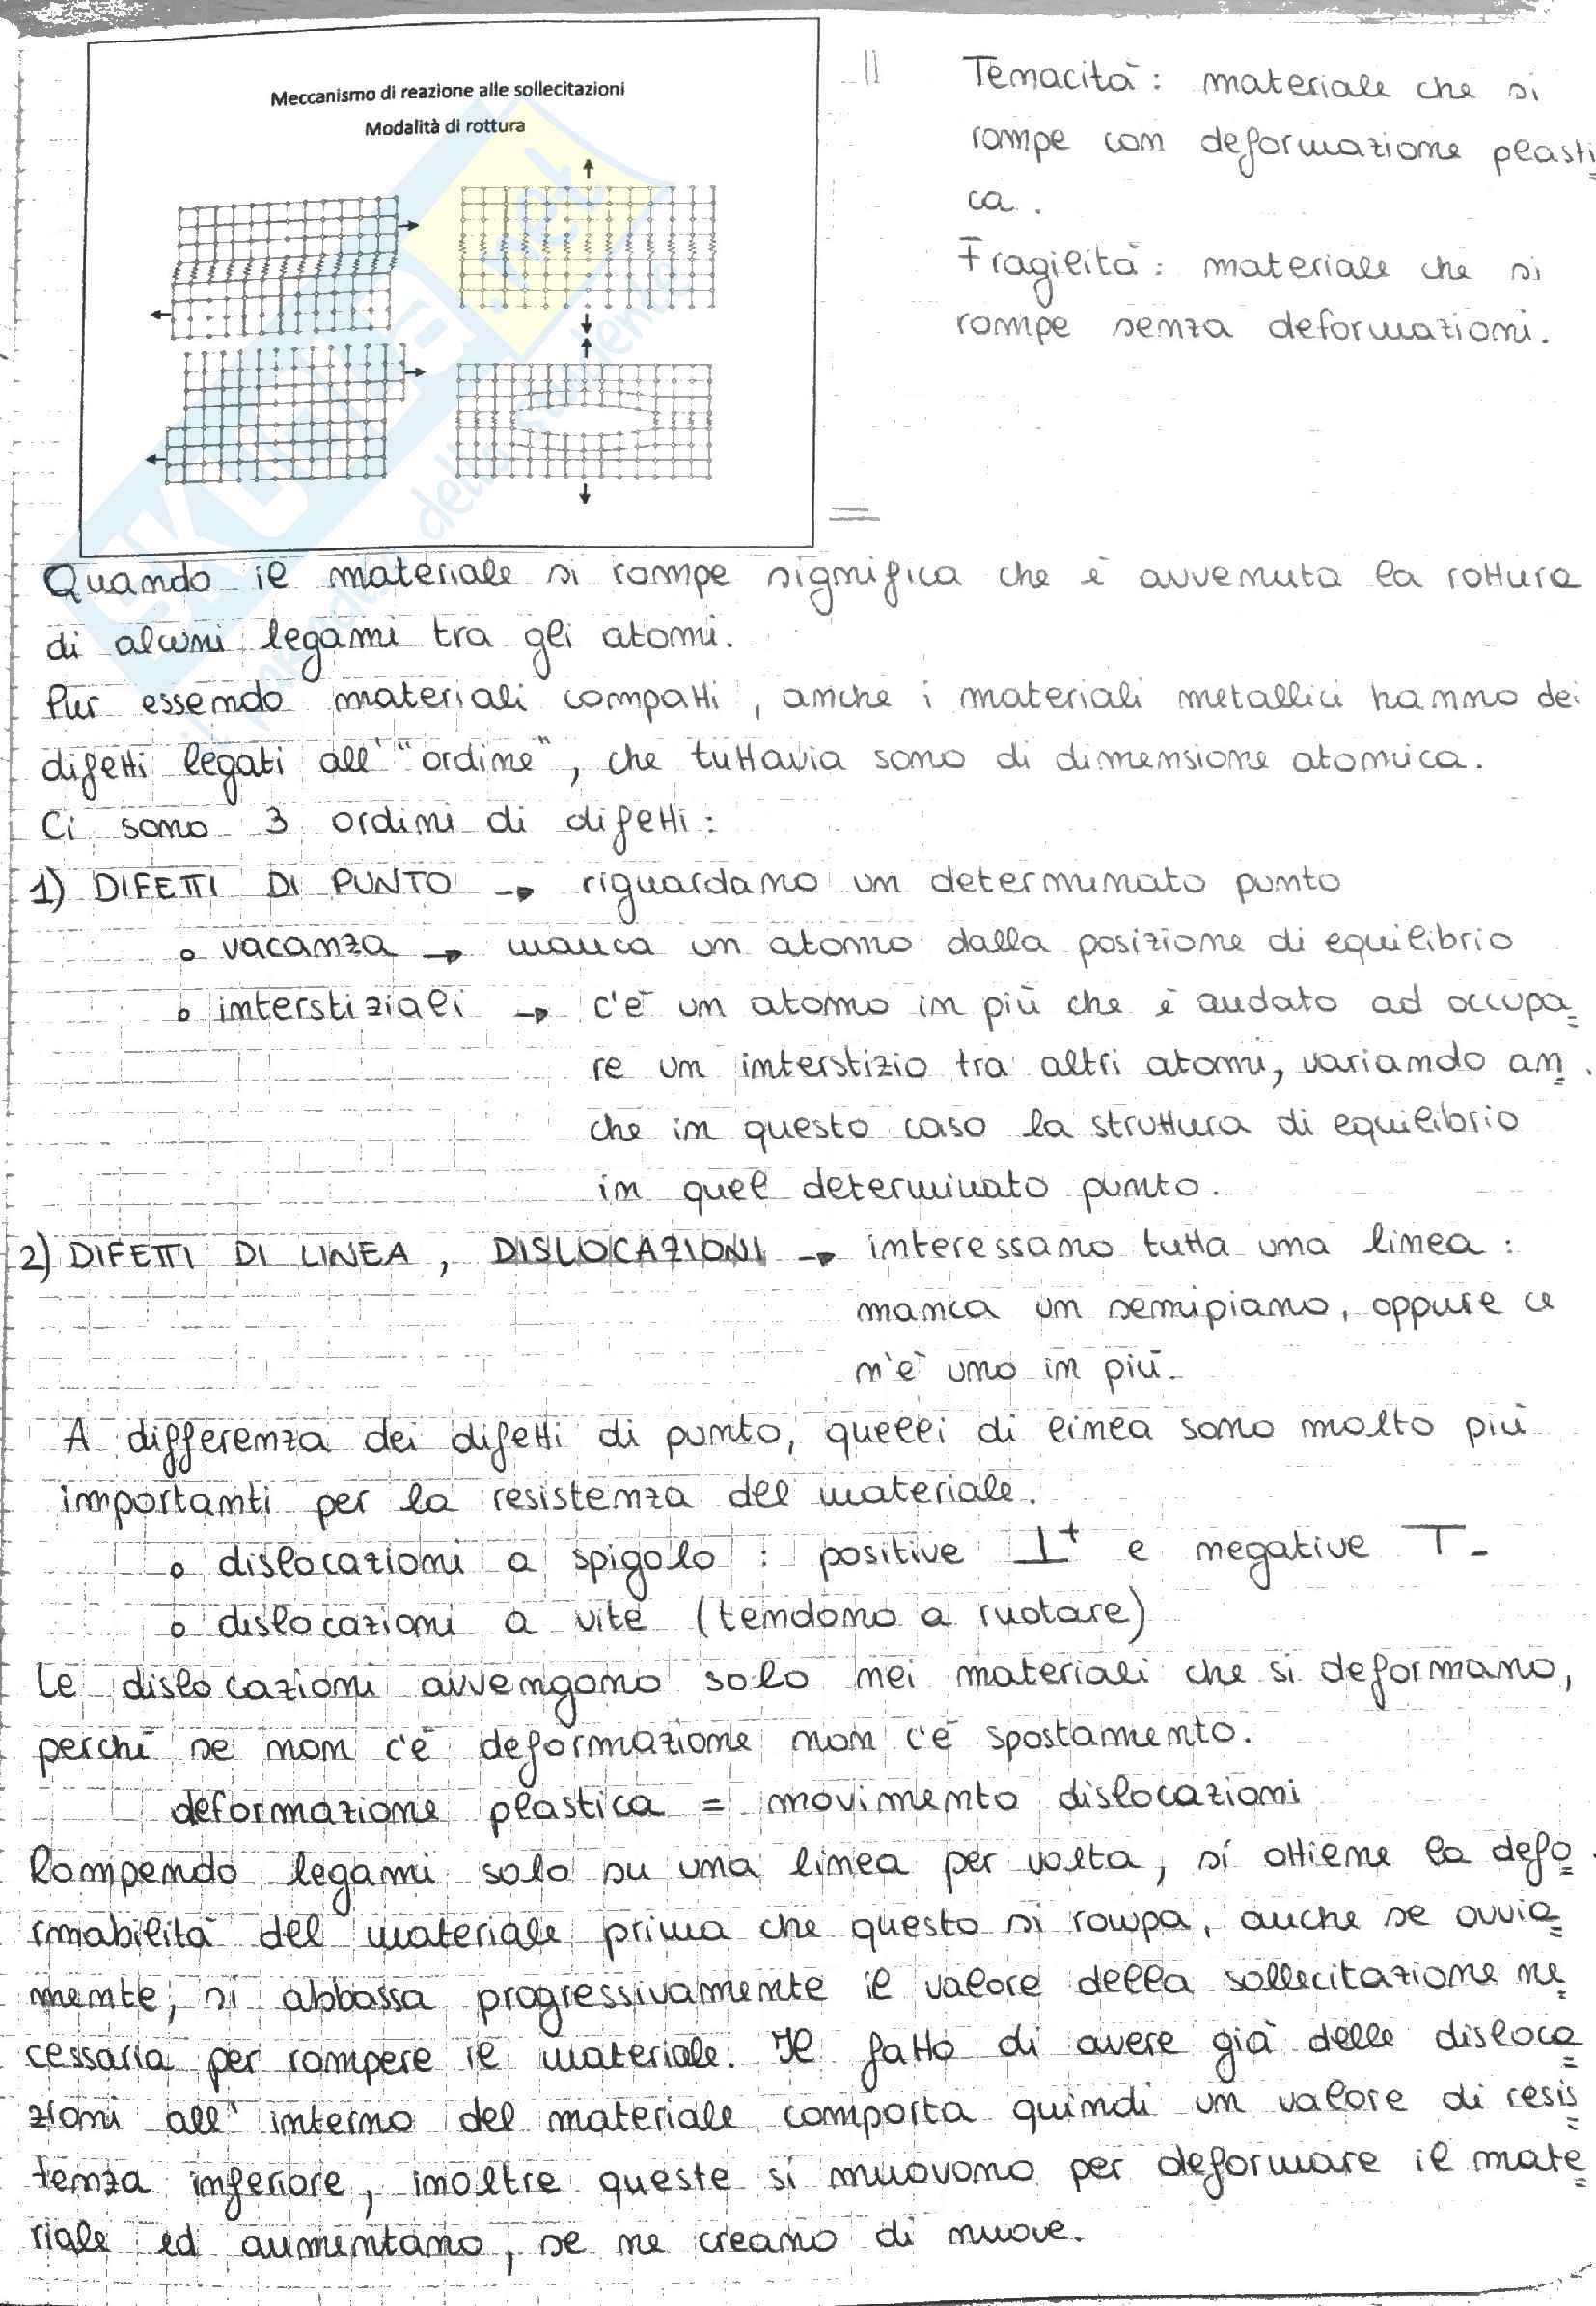 Meccanismo di reazione alle sollecitazioni
Modalità di rottura
Tenacità: materiale che si
rompe con deformazione plasti
ca.
Fragilità: materiale che si
rompe senza deformazioni.
SKUOLA.net
il portale dello studente
Quando il materiale si rompe significa che è avvenuta la rottura
di alcuni legami tra gli atomi.
Pur essendo materiali compatti, anche i materiali metallici hanno dei
difetti legati all'"ordine", che tuttavia sono di dimensione atomica.
Ci sono 3 ordini di difetti:
1) DIFETTI DI PUNTO → riguardano un determinato punto
o vacanza → manca un atomo dalla posizione di equilibrio
o interstiziali → c'è un atomo in più che è andato ad occupa
re un interstizio tra altri atomi, variando an
che in questo caso la struttura di equilibrio
in quel determinato punto.
2) DIFETTI DI LINEA, DISLOCAZIONI → interessano tutta una linea:
manca un semipiano, oppure ce
n'è uno in più.
A differenza dei difetti di punto, quelli di linea sono molto più
importanti per la resistenza del materiale.
o dislocazioni a spigolo: positive ⊥+ e negative T-
o dislocazioni a vite (tendono a ruotare)
Le dislocazioni avvengono solo nei materiali che si deformano,
perchè se non c'è deformazione non c'è spostamento.
deformazione plastica = movimento dislocazioni
Rompendo legami solo su una linea per volta, si ottiene la defo
rmabilità del materiale prima che questo si rompa, anche se ovvia
mente, si abbassa progressivamente il valore della sollecitazione ne
cessaria per rompere il materiale. Il fatto di avere già delle disloca
zioni all'interno del materiale comporta quindi un valore di resis
tenza inferiore, inoltre queste si muovono per deformare il mate
riale ed aumentano, se ne creano di nuove.